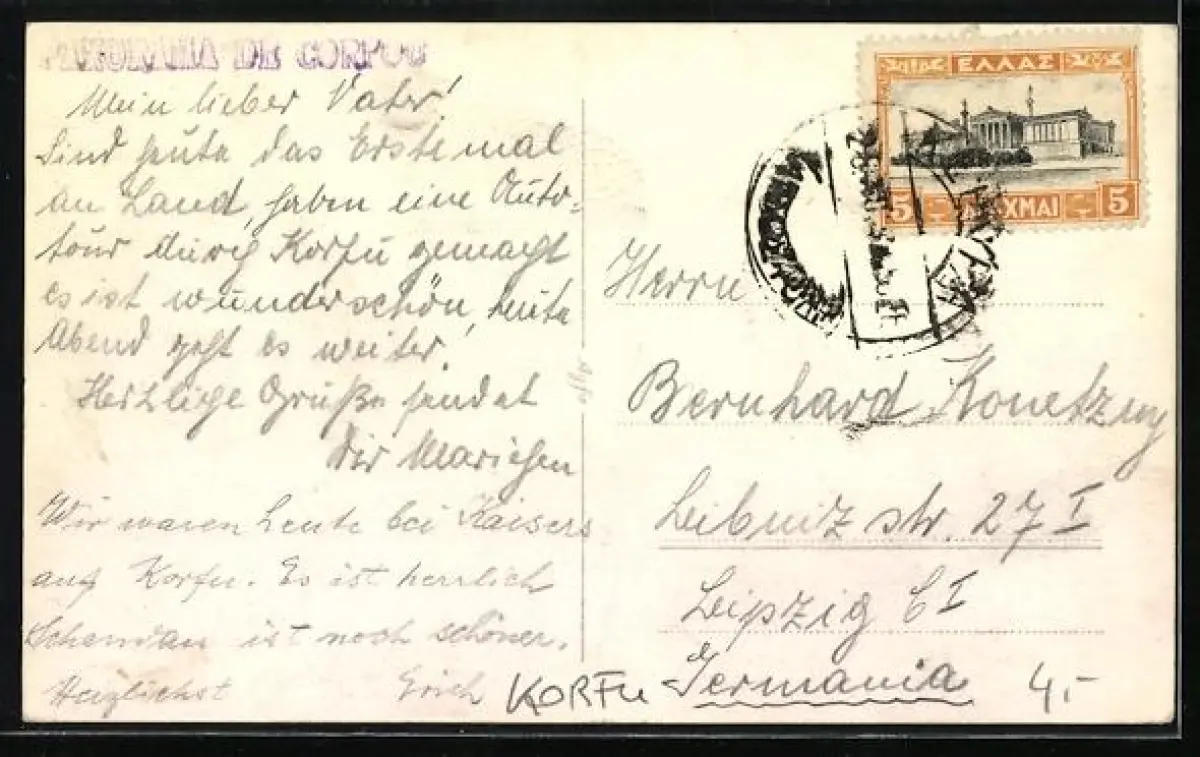 PANORAMA DE CORFOU
Mein lieber Vater!
Sind heute das Erste mal
an Land, haben eine Auto-
tour durch Korfu gemacht
es ist wunderschön, heute
Abend geht es weiter!
Herzliche Grüße sendet
Dir Mariechen
Wir waren heute bei Kaisers
auf Korfu. Es ist herrlich
ist noch schöner.
Herzlichst Erich
ΕΛΛΑΣ
5 ΔΡΑΧΜΑΙ 5
Herrn
Bernhard Konetzny
Leibnizstr. 27 I
Leipzig C I
Germania
KORFu
4,-